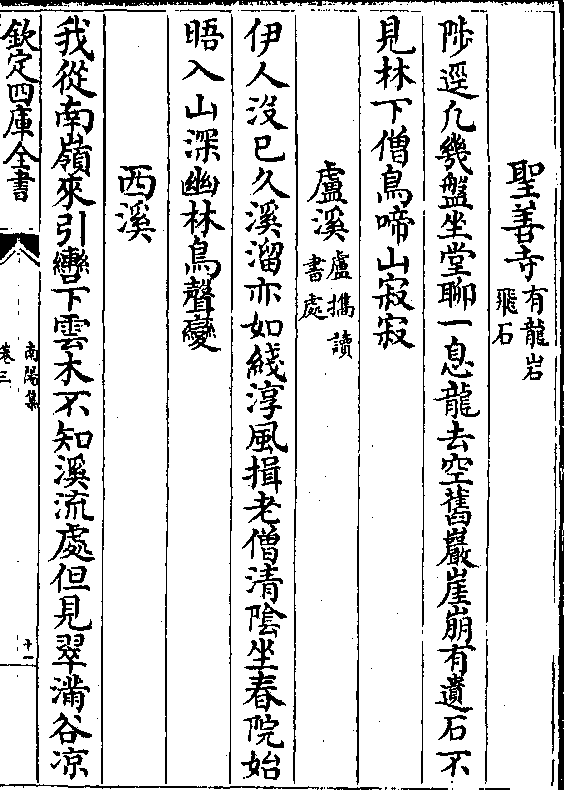 聖善寺有龍岩飛石
陟逕凡幾盤坐堂聊一息龍去空舊巖崖崩有遺石不
見林下僧鳥啼山寂寂
盧溪盧擕讀書處
伊人沒已久溪溜亦如綫淳風揖老僧清陰坐春院始
晤入山深幽林鳥聲變
西溪
我從南嶺來引轡下雲木不知溪流處但見翠滿谷凉
欽定四庫全書
南陽集
卷三
十一